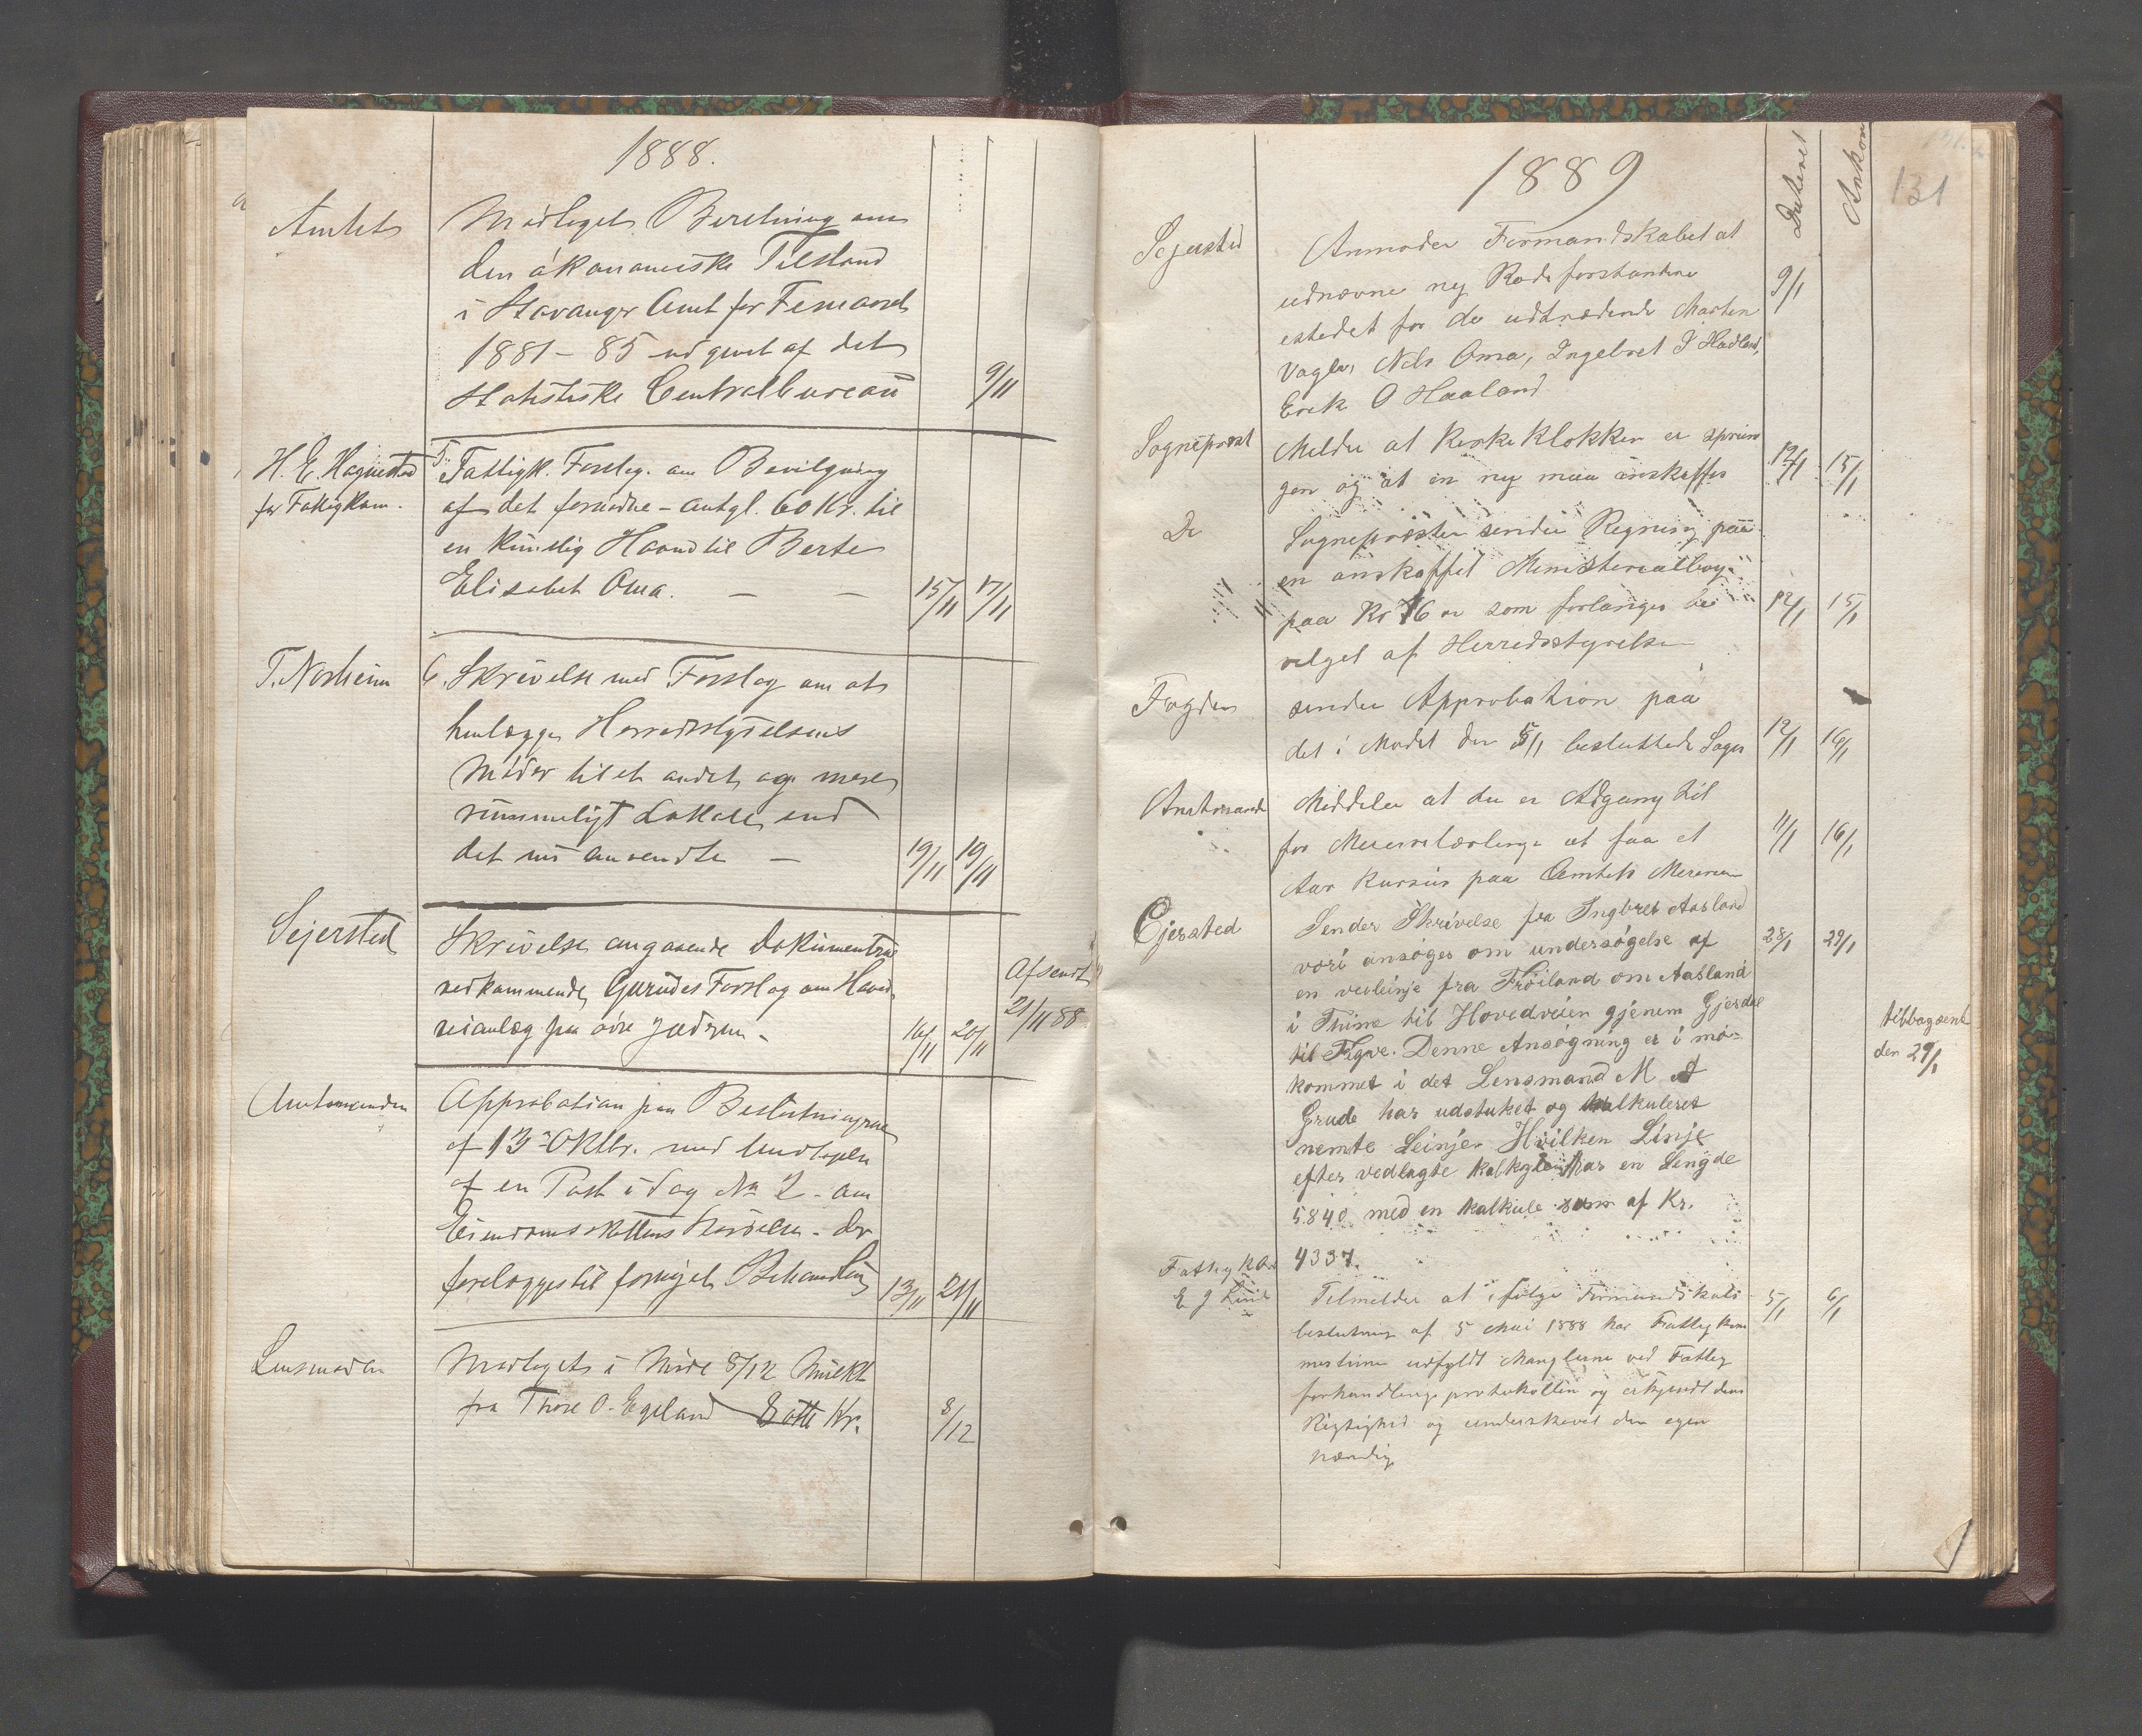 1888.
Amtet
Modtaget Beretning om
den økonomiske Tilstand
i Stavanger Amt for Femaaret
1881-85 udgivet af det
statistiske Centralbureau
9/11
H. E. Hognestad
for Fattigkom.
5. Fattigk. Forslag om Bevilgning
af det fornødne - antgl. 60 Kr. til
en kunstig Haand til Berte
Elisabet Oma. — —
15/11 17/11
T. Norheim
6. Skrivelse med Forslag om at
henlægge Herredsstyrelsens
Møder til et andet og mere
rummeligt Lokale end
det nu anvendte —
19/11 19/11
Sejersted
Skrivelse angaaende Dokumenterne
vedkommende Gurudes Forslag om Hoved-
veianlæg paa øvre Jædren -
16/11 20/11
Afsendt
21/11 88
Amtmanden
Approbation paa Beslutningerne
af 13de Oktbr. med Undtagelse
af en Post i Sag No 2 - om
Eiendomsskattens Størrelse - der
forelægges til fornyet Behandling
13/11 21/11
Lensmanden
Modtaget i Møde 8/12 Mulkt
fra Thore O. Egeland 8 otte Kr.
8/12
1889
Dateret
Ankom
131
Sejersted
Anmoder Formandskabet at
udnævne ny Rodeforstandere
istedet for de udtrædende Morten
Vagle, Nils Oma, Ingebret P Hadland,
Erik O Haaland
9/1
Sognepræst
Melder at Kirkeklokken er sprun
gen og at en ny maa anskaffes
12/1 15/1
Do
Sognepræsten sender Regning paa
en anskaffet Ministerialbog
paa Kr 76 er som forlanges be
vilget af Herredsstyrelsen
12/1 15/1
Fogden
sender Approbation paa
det i Mødet den 5/1 besluttede Sager
12/1 16/1
Amtmanden
Middeler at der er Adgang til
for Meierielærlinge at faa et
Aar Kursus paa Amtets Meierier
11/1 16/1
Ejersted
Sender Skrivelse fra Ingbret Aasland
vori ansøges om undersøgelse af
en veileinje fra Frøiland om Aasland
i Thime til Hovedveien gjenem Gjesdal
til Figve. Denne Ansøgning er i mø-
kommet i det Lensmand M A
Grude har udstuket og kalkuleret
nemte Leinje. Hvilken Linje
efter vedlagte kalkyle har en Lengde
5840 med en kalkule sum af Kr.
4337.
28/1 29/1
tilbagsent
den 29/1
Fattigkom
E J Lima
Tilmelder at ifølge Formandskabs
beslutning af 5 Mai 1888 har Fattigkom
misionen udfyldt Manglerne ved Fattig
forhandlings protokollen og erkjendt dens
Rigtighed og underskrevet den egen
hændig
5/1 6/1